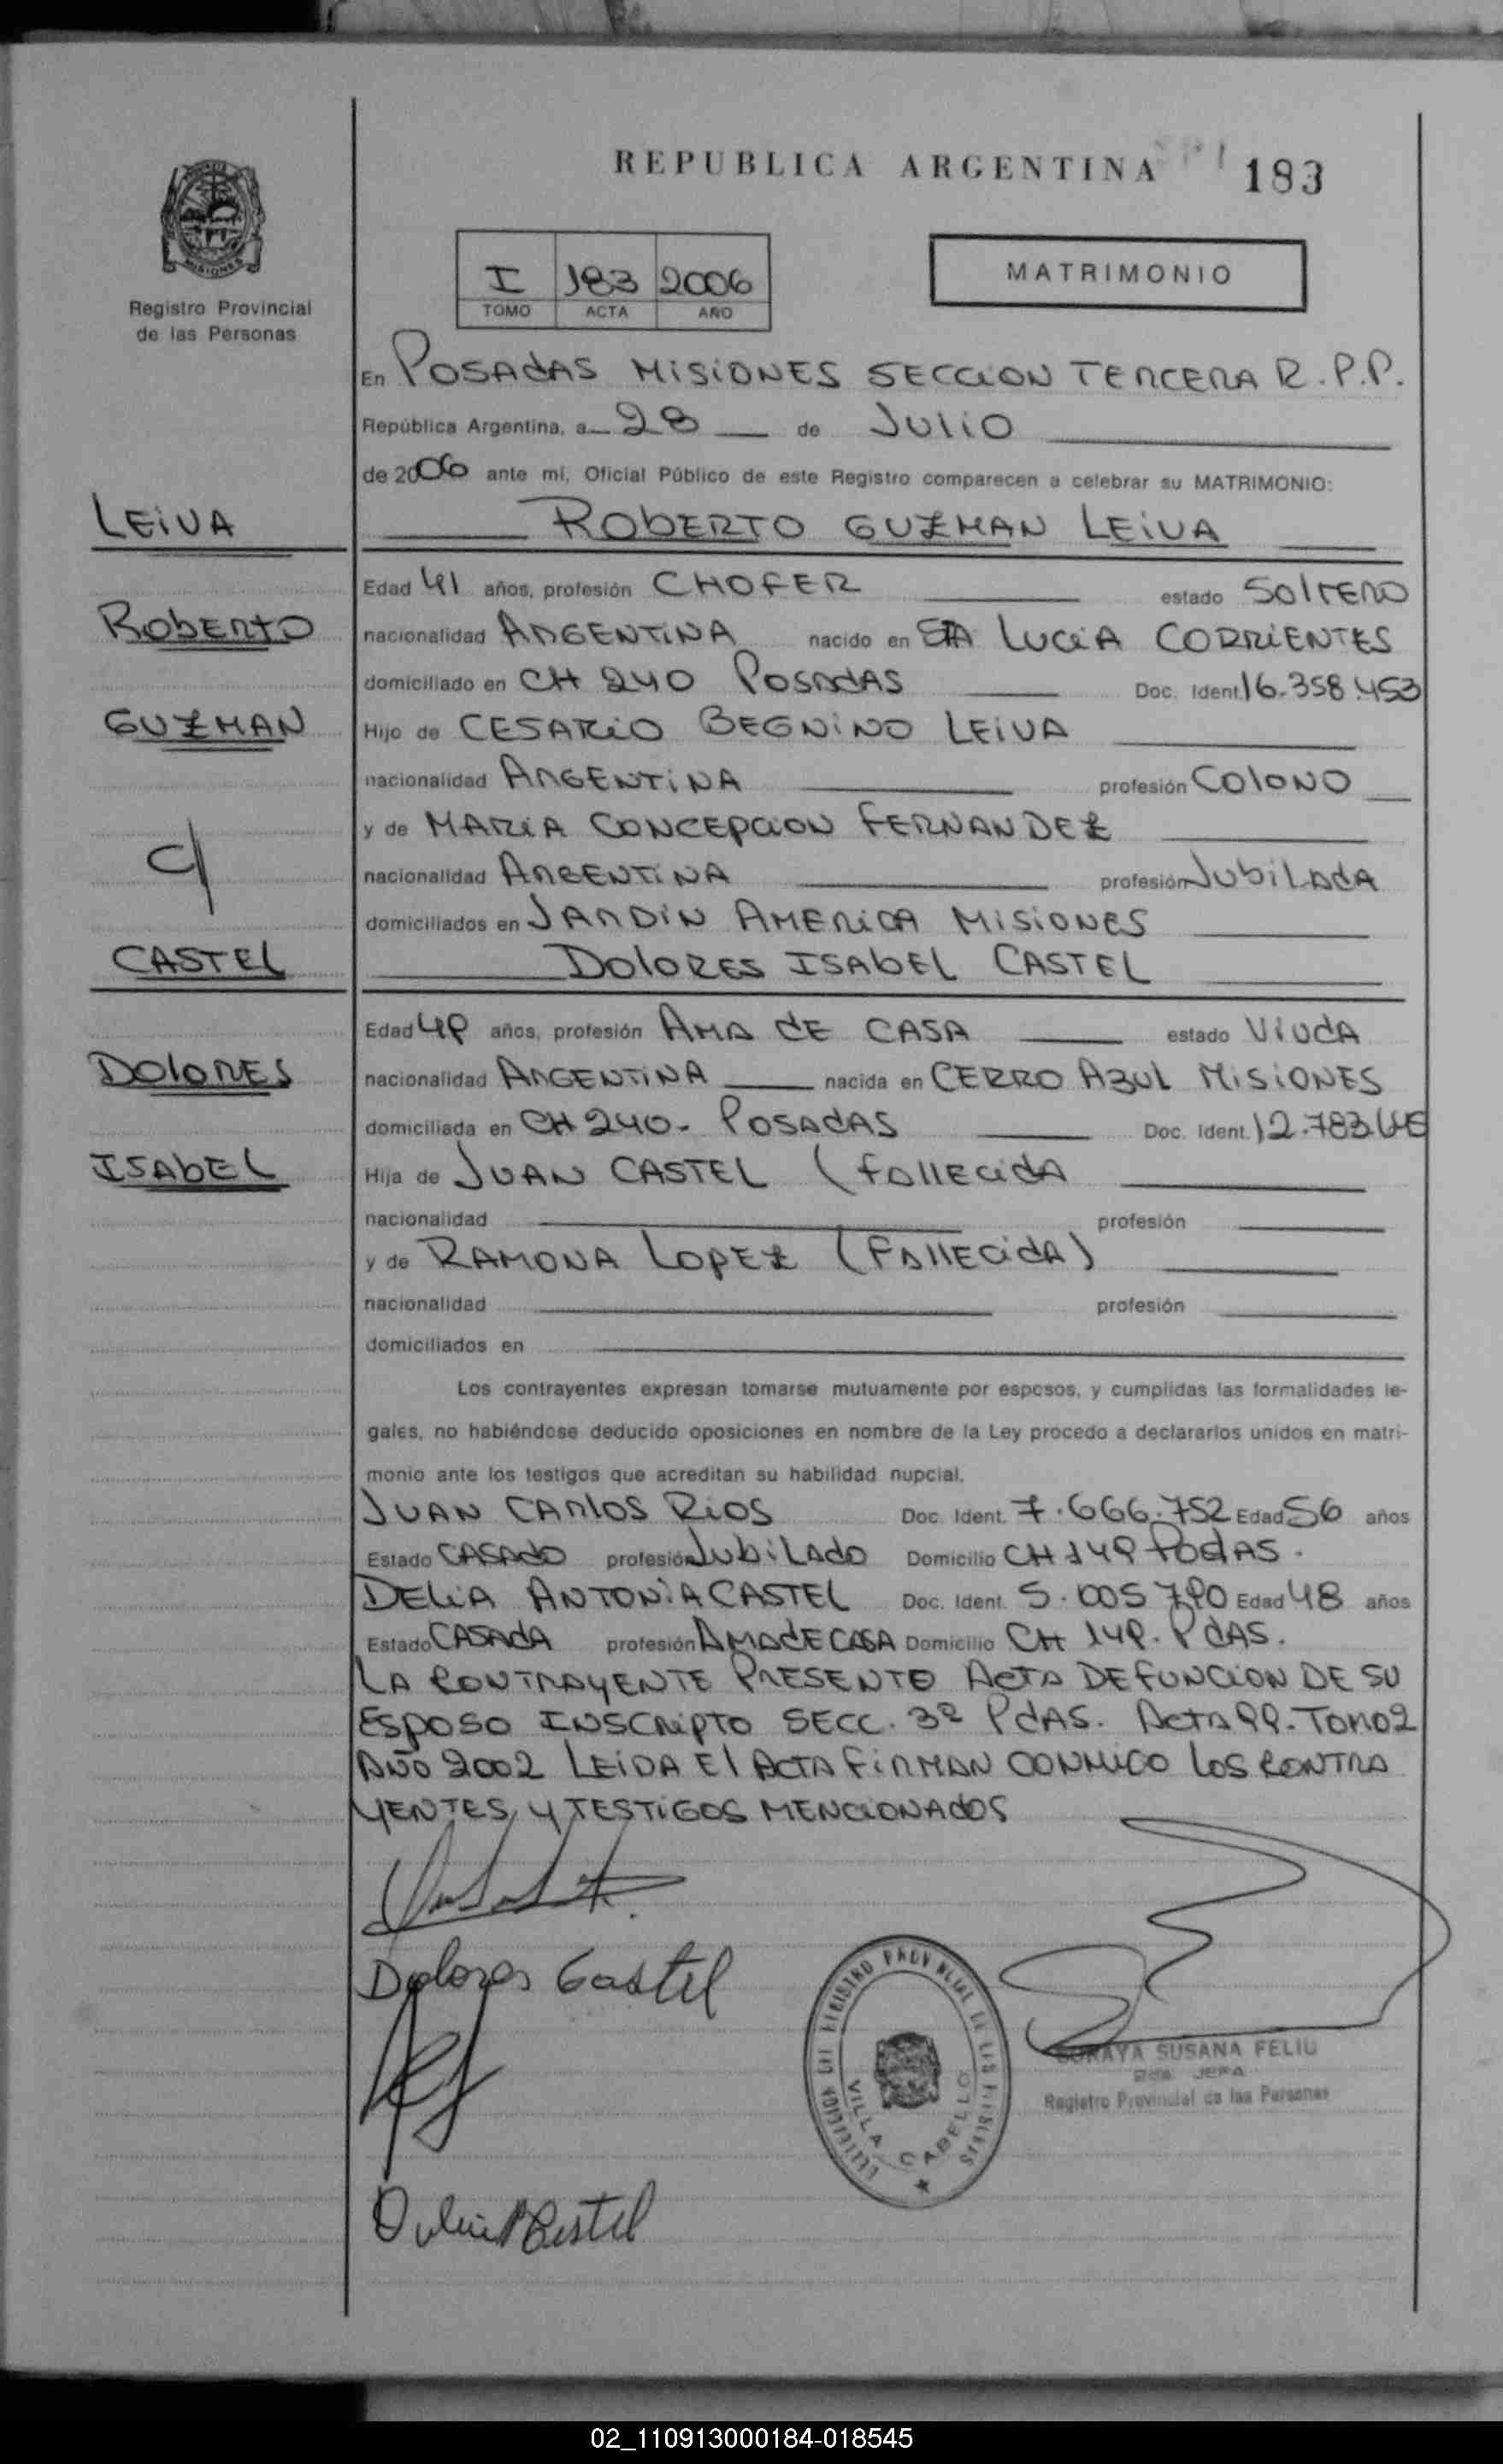 REPUBLICA ARGENTINA 183
MISIONES
Registro Provincial
de las Personas
I 183 2006
TOMO ACTA AÑO
MATRIMONIO
En POSADAS MISIONES SECCION TERCERA R.P.P.
República Argentina, a 28 de JULIO
de 2006 ante mí, Oficial Público de este Registro comparecen a celebrar su MATRIMONIO:
LEIVA
ROBERTO GUZMAN LEIVA
Edad 41 años, profesión CHOFER estado SOLTERO
ROBERTO
nacionalidad ARGENTINA nacido en STA LUCIA CORRIENTES
domiciliado en CH 240 POSADAS Doc. Ident. 16.358.453
GUZMAN
Hijo de CESARIO BEGNINO LEIVA
nacionalidad ARGENTINA profesión COLONO
y de MARIA CONCEPCION FERNANDEZ
C/
nacionalidad ARGENTINA profesión JUBILADA
domiciliados en JARDIN AMERICA MISIONES
CASTEL
DOLORES ISABEL CASTEL
Edad 49 años, profesión AMA DE CASA estado VIUDA
DOLORES
nacionalidad ARGENTINA nacida en CERRO AZUL MISIONES
domiciliada en CH 240- POSADAS Doc. Ident.
ISABEL
Hija de JUAN CASTEL (FALLECIDA
nacionalidad profesión
y de RAMONA LOPEZ (FALLECIDA)
nacionalidad profesión
domiciliados en
Los contrayentes expresan tomarse mutuamente por esposos, y cumplidas las formalidades le-
gales, no habiéndose deducido oposiciones en nombre de la Ley procedo a declararlos unidos en matri-
monio ante los testigos que acreditan su habilidad nupcial.
JUAN CARLOS RIOS Doc. Ident. 7.666.752 Edad 56 años
Estado CASADO profesión JUBILADO Domicilio CH 149 PODAS.
DELIA ANTONIA CASTEL Doc. Ident. 5.005790 Edad 48 años
Estado CASADA profesión AMA DE CASA Domicilio CH 149. PDAS.
LA CONTRAYENTE PRESENTO ACTA DEFUNCION DE SU
ESPOSO INSCRIPTO SECC. 3º PDAS. ACTA 99-TOMO 2
AÑO 2002 LEIDA EL ACTA FIRMAN CONMIGO LOS CONTRA
YENTES, Y TESTIGOS MENCIONADOS
Dolores Castel
REGISTRO PROVINCIAL DE LAS PERSONAS
VILLA CABELLO
SORAYA SUSANA FELIU
JEFA
Registro Provincial de las Personas
Delia A Castel
02_110913000184-018545